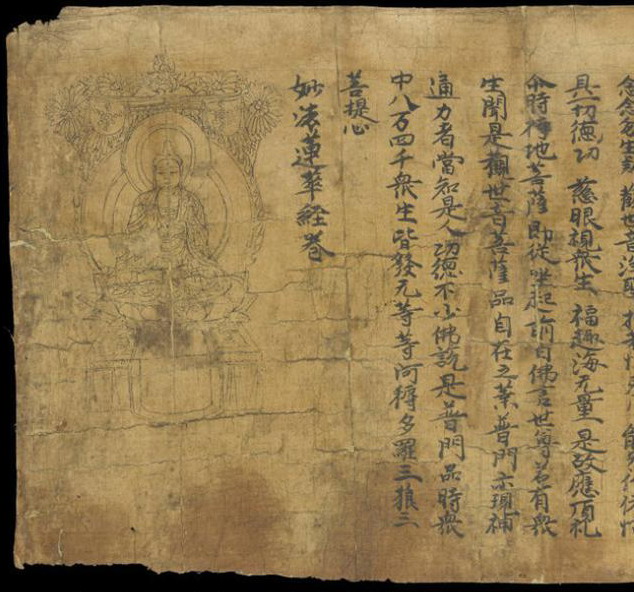 念念勿生疑 觀世音淨聖
具一切德功 慈眼視衆生 福趣海无量 是故應頂礼
尒時持地菩薩即從坐起前白佛言世尊若有衆
生聞是觀世音菩薩品自在之業普門示現神
通力者當知是人功德不少佛說是普門品時衆
中八万四千衆生皆發元等等阿耨多羅三狼三
菩提心
妙法蓮華經卷